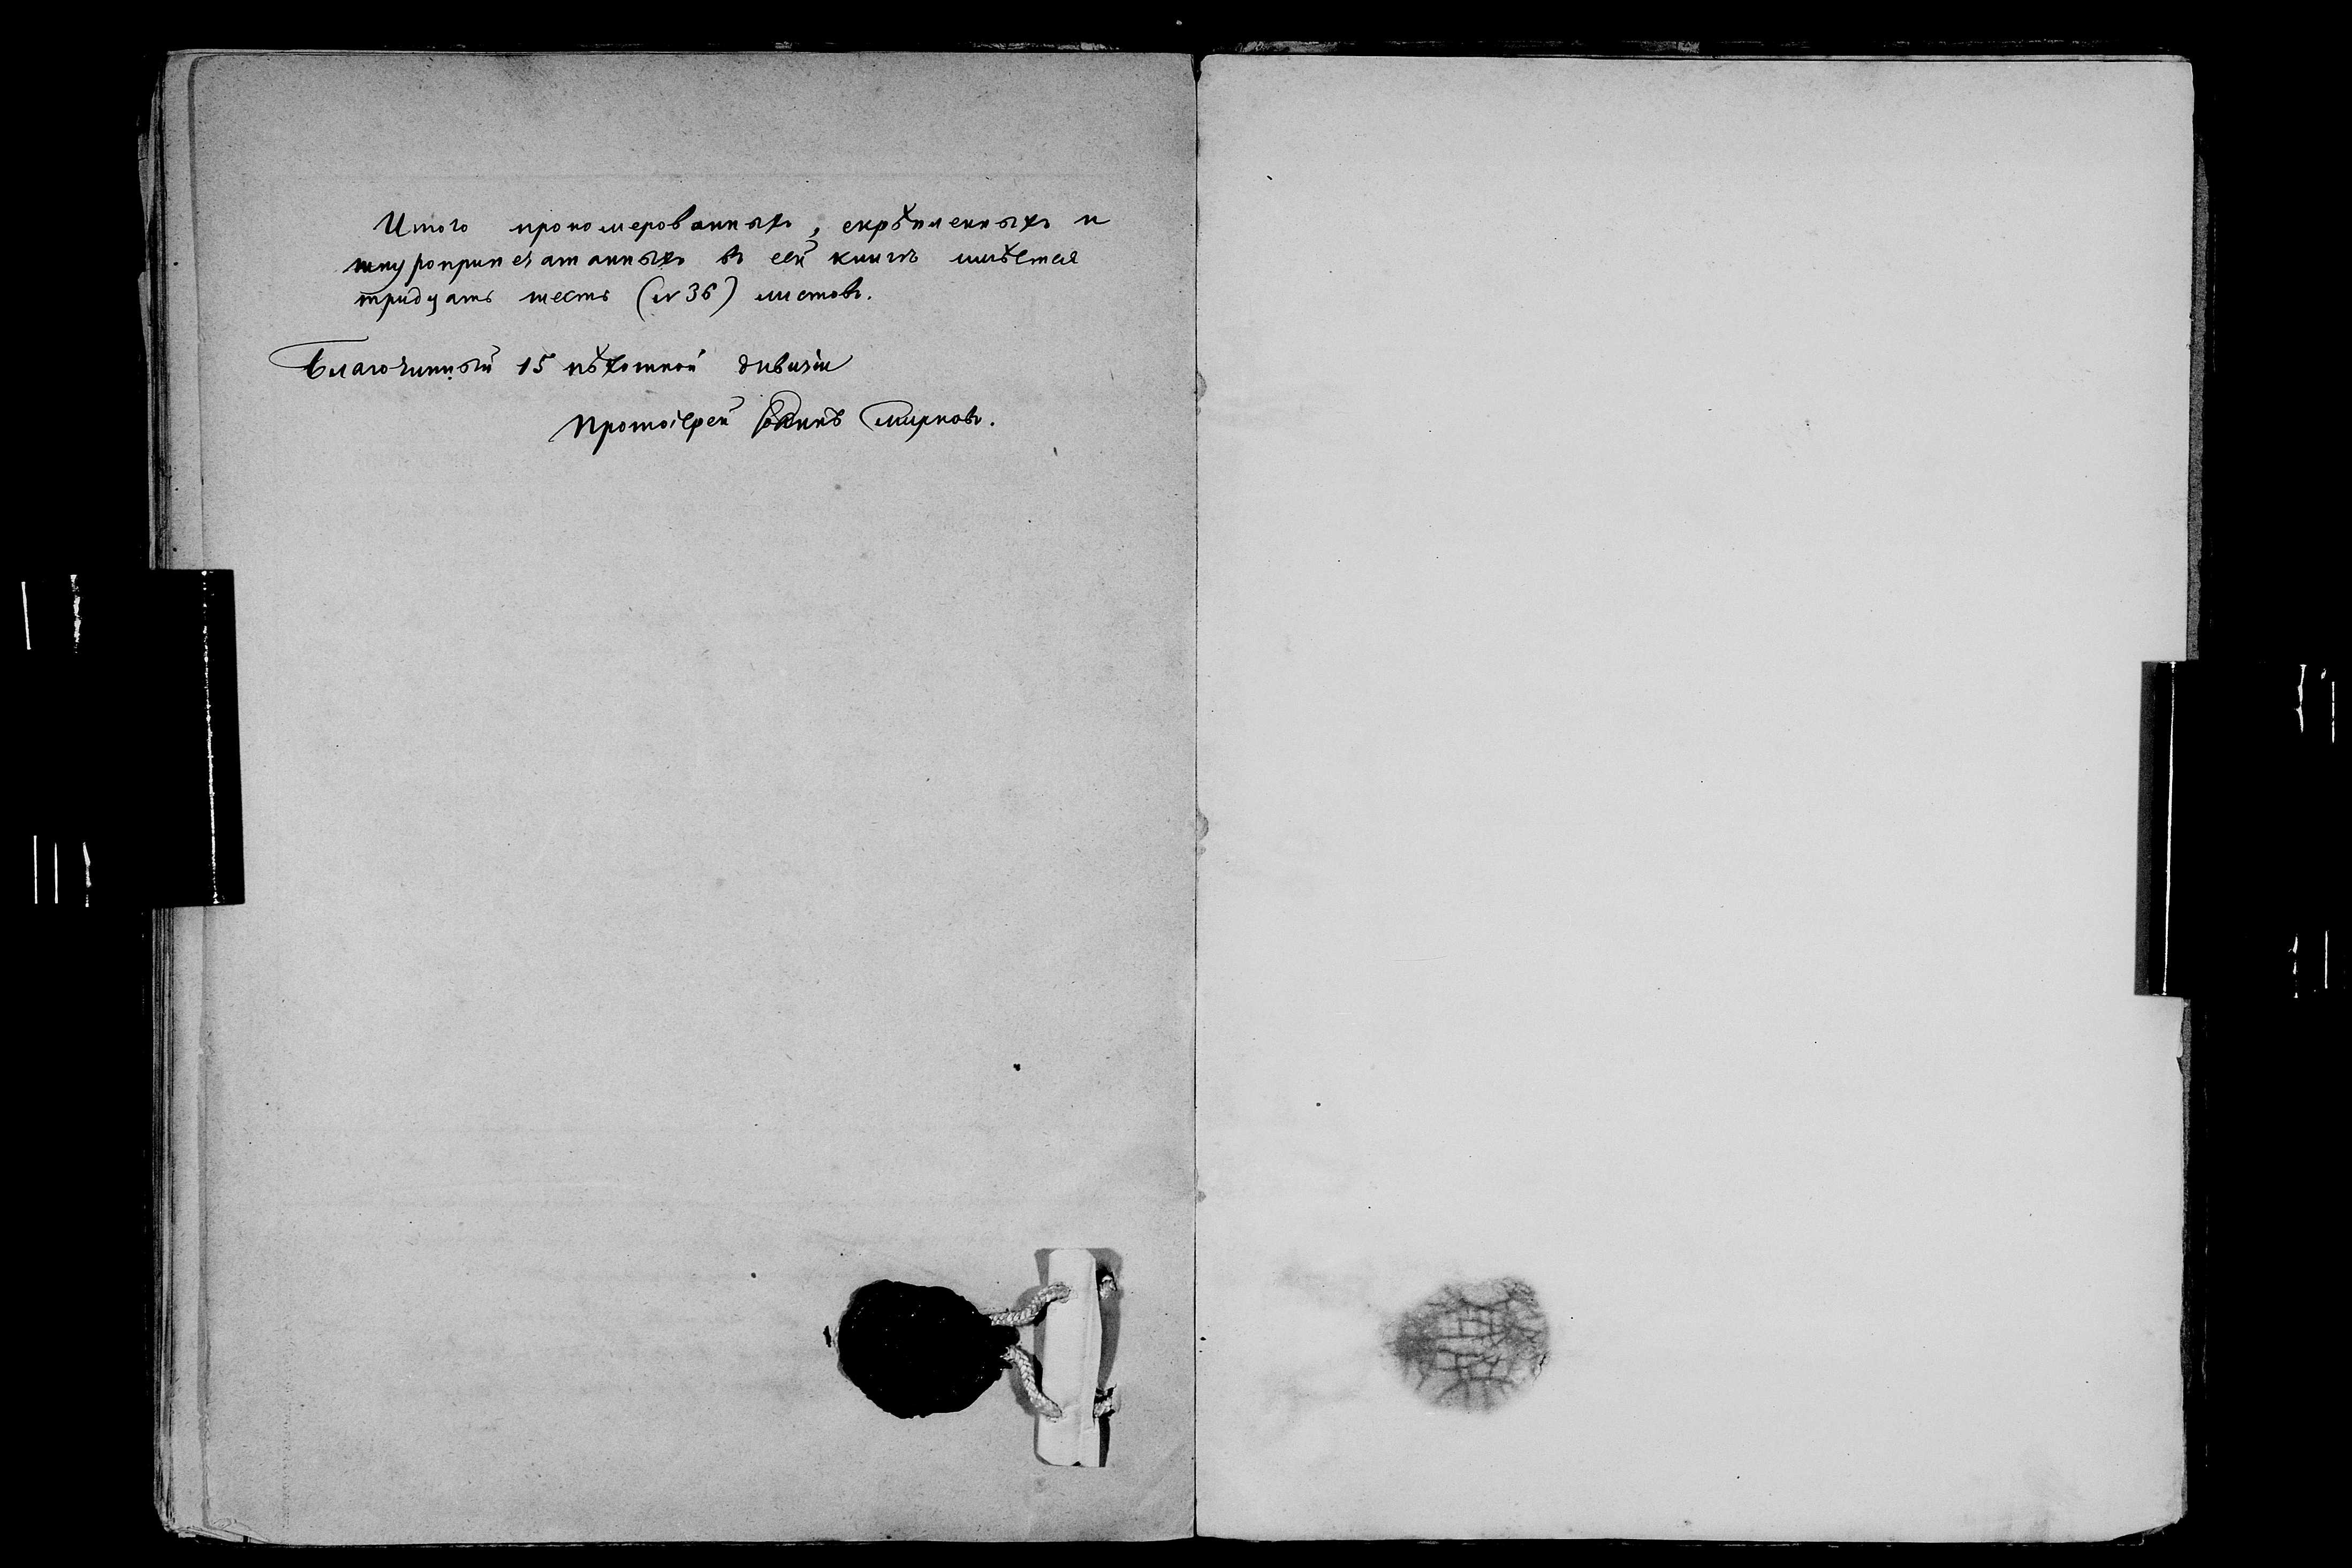 Итого прономерованныхъ, скрѣпленныхъ и
шнуроприпечатанныхъ въ сей книгѣ имѣется
тридцать шесть (№ 36) листовъ.
Благочинный 15 пѣхотной дивизіи
Протоіерей Іоаннъ Смирновъ.